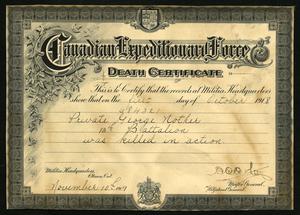 Canadian Expeditionary Force
DEATH CERTIFICATE
This is to Certify that the records at Militia Headquarters
show that on the first day of October 1918
Private George Nother
Battalion
was killed in action.
Militia Headquarters
Ottawa, Ont.
November
Major General,